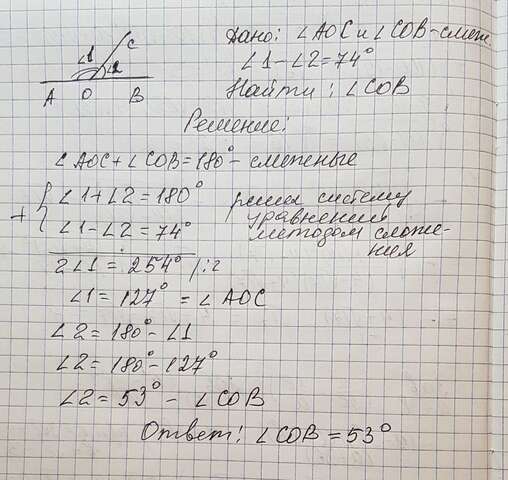 Дано: ∠AOC и ∠COB - смеж.
∠1 - ∠2 = 74°
Найти: ∠COB
∠1 C
∠2
A O B
Решение:
∠AOC + ∠COB = 180° - смежные
∠1 + ∠2 = 180° решим систему
+ { ∠1 - ∠2 = 74° уравнений
методом сложе-
ния
2∠1 = 254° |:2
∠1 = 127° = ∠AOC
∠2 = 180° - ∠1
∠2 = 180° - 127°
∠2 = 53° - ∠COB
Ответ: ∠COB = 53°